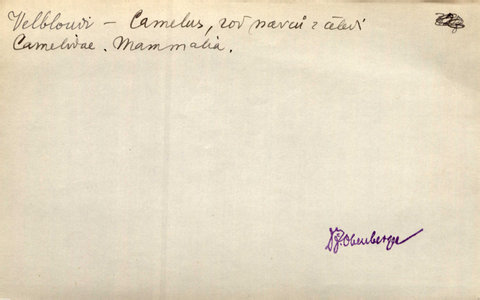 Velbloudi – Camelus, rod savců z čeledi
Camelidae. Mammalia.
Dr. J. Obenberger